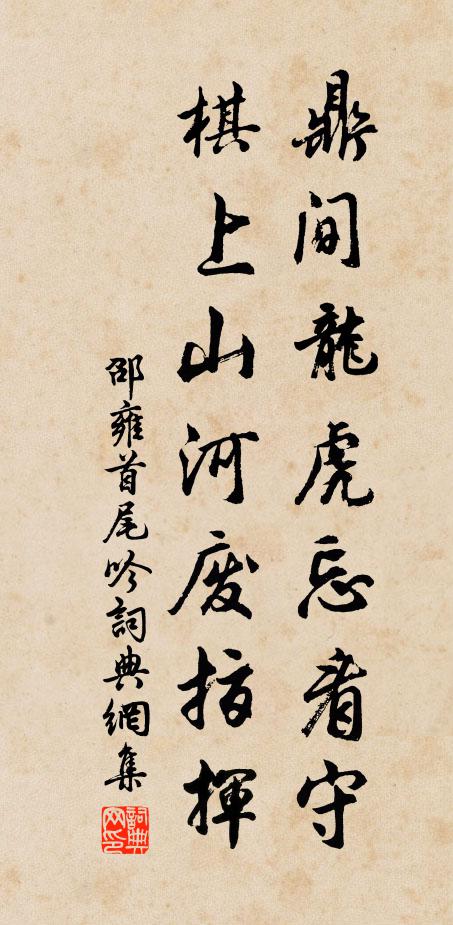 鼎間龍虎忘看守
棋上山河廢指揮
邵雍首尾吟詞典網集
詞典網印